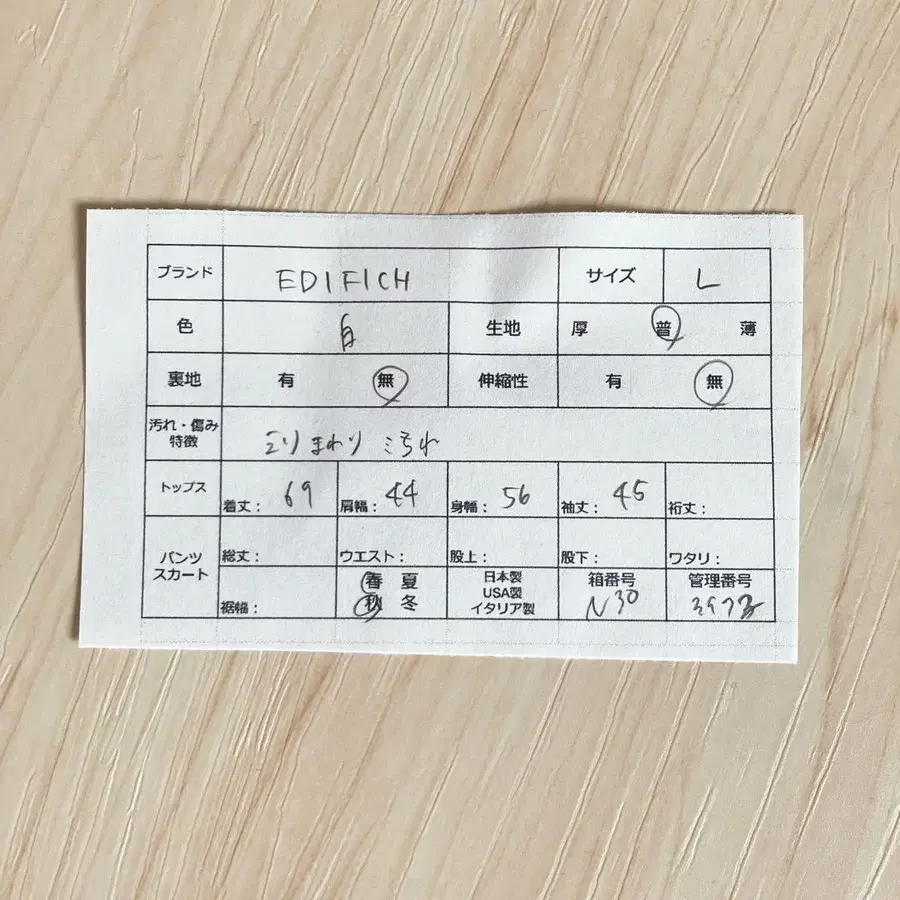 ブランド EDIFICH サイズ L
色 白 生地 厚 普 薄
裏地 有 無 伸縮性 有 無
汚れ・傷み
特徴 えりまわり 汚れ
トップス 着丈： 69 肩幅： 44 身幅： 56 袖丈： 45 裄丈：
パンツ
スカート 総丈： ウエスト： 股上： 股下： ワタリ：
裾幅： 春 夏
秋 冬
日本製
USA製
イタリア製
箱番号
N30
管理番号